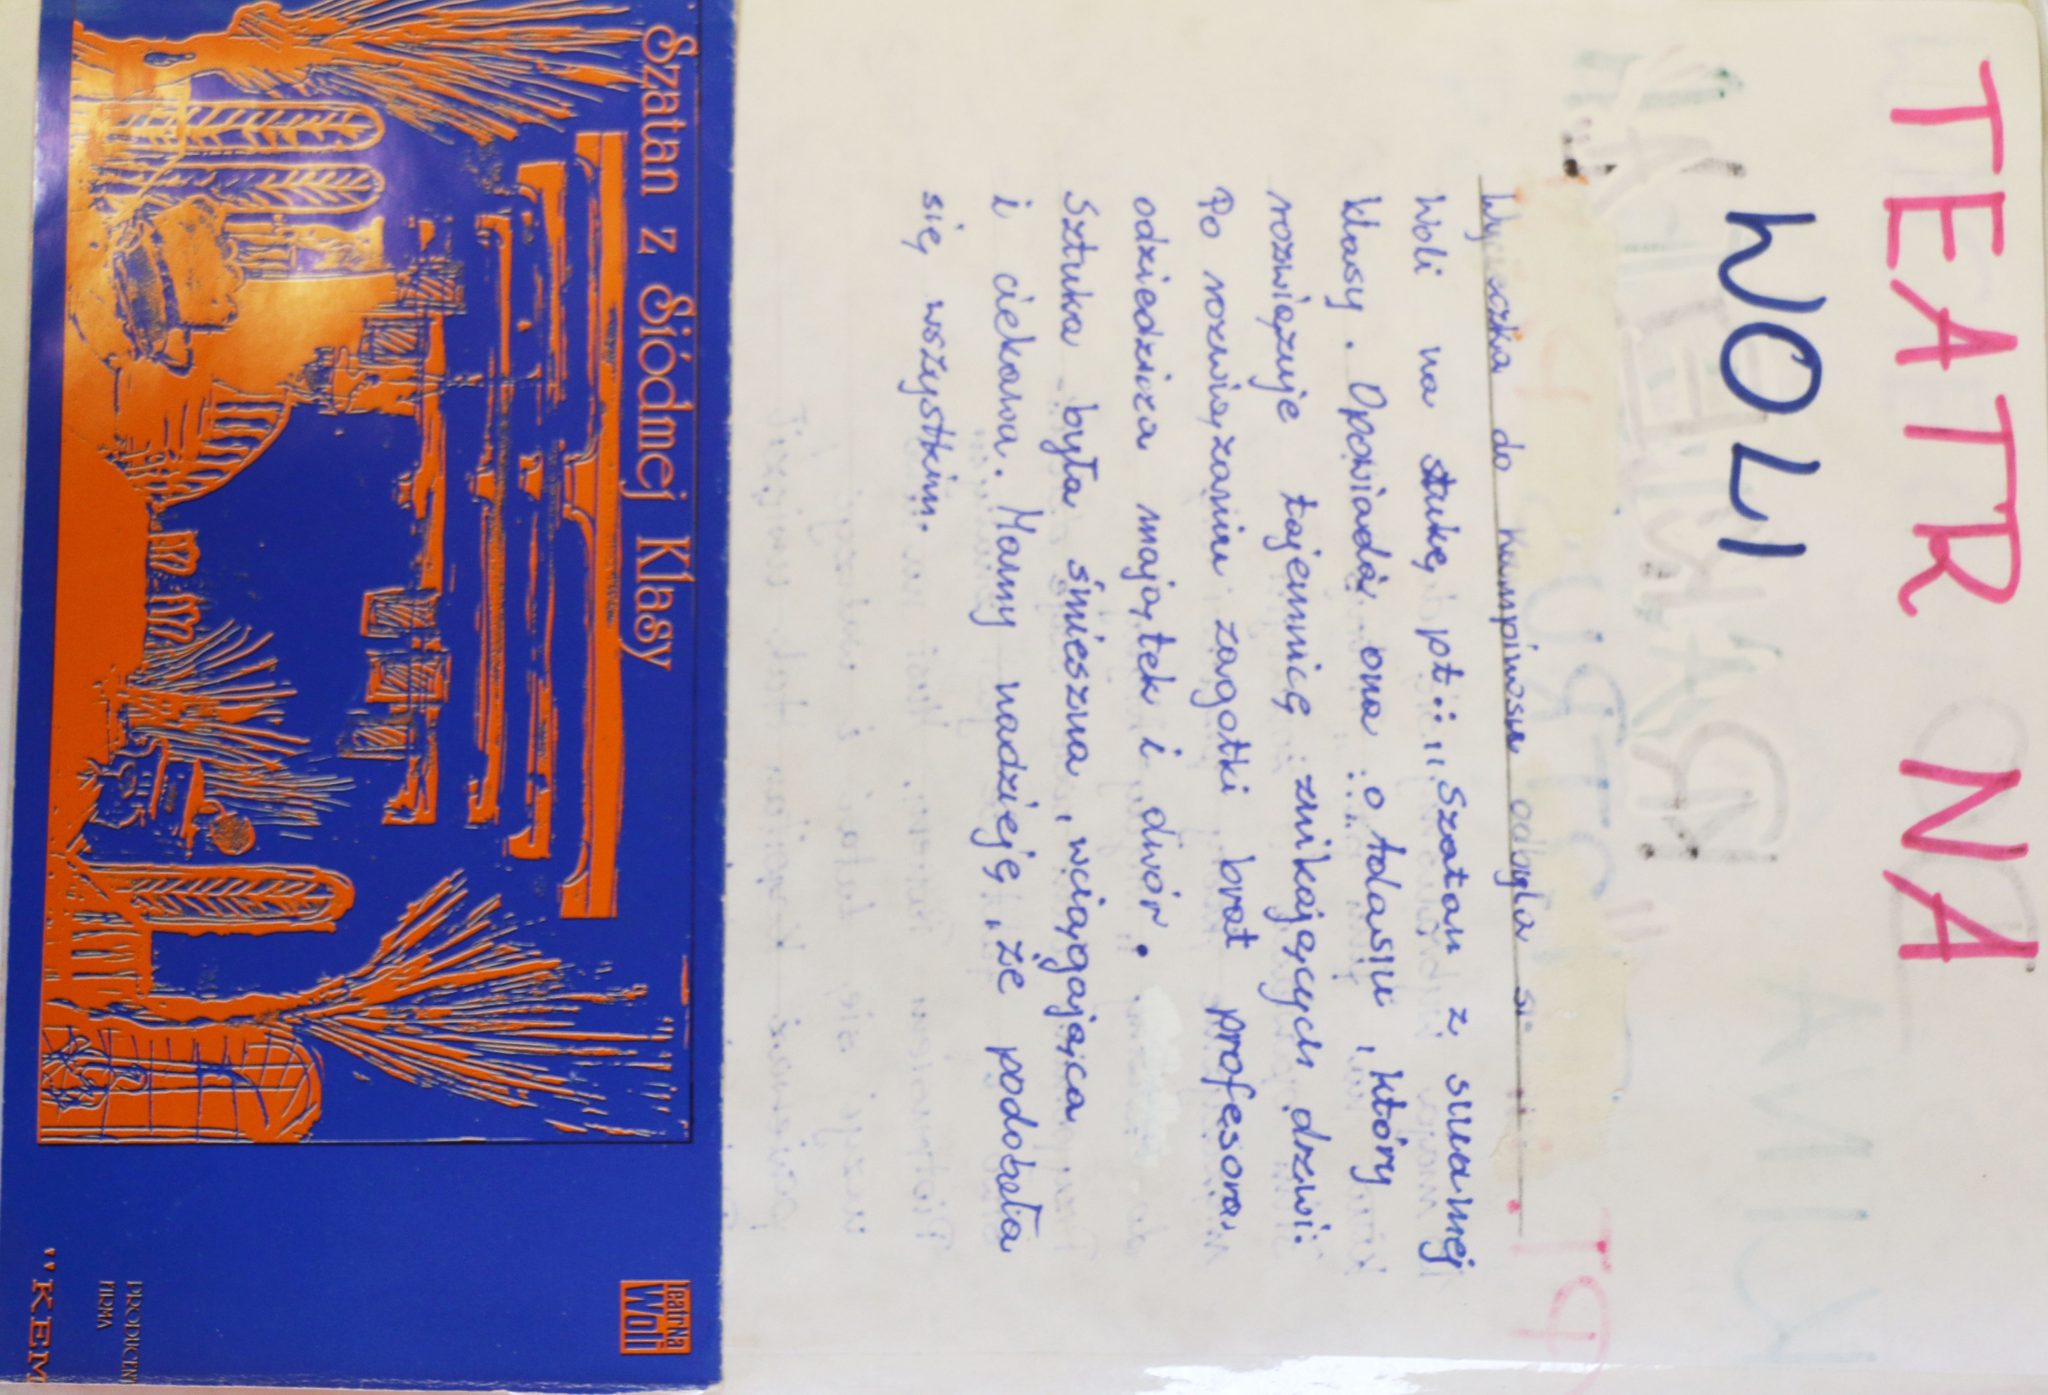 TEATR NA
WOLI
Wycieczka do Kampinosu odbyła się
Woli na stukę pt:: „Szatan z suuamej
klasy. Opowiada ona o Adasiu, który
rozwiązuje tajemnicę znikających drzwi.
Po rozwiązaniu zagatki brat profesora
odziedzicza majątek i dwór.
Sztuka była śmieszna, wciągająca
i ciekawa. Mamy nadzieję, że podobała
się wszystkim.
Szatan z Siódmej Klasy
teatr Na
Woli
PRODUCENT
FIRMA
"KEM